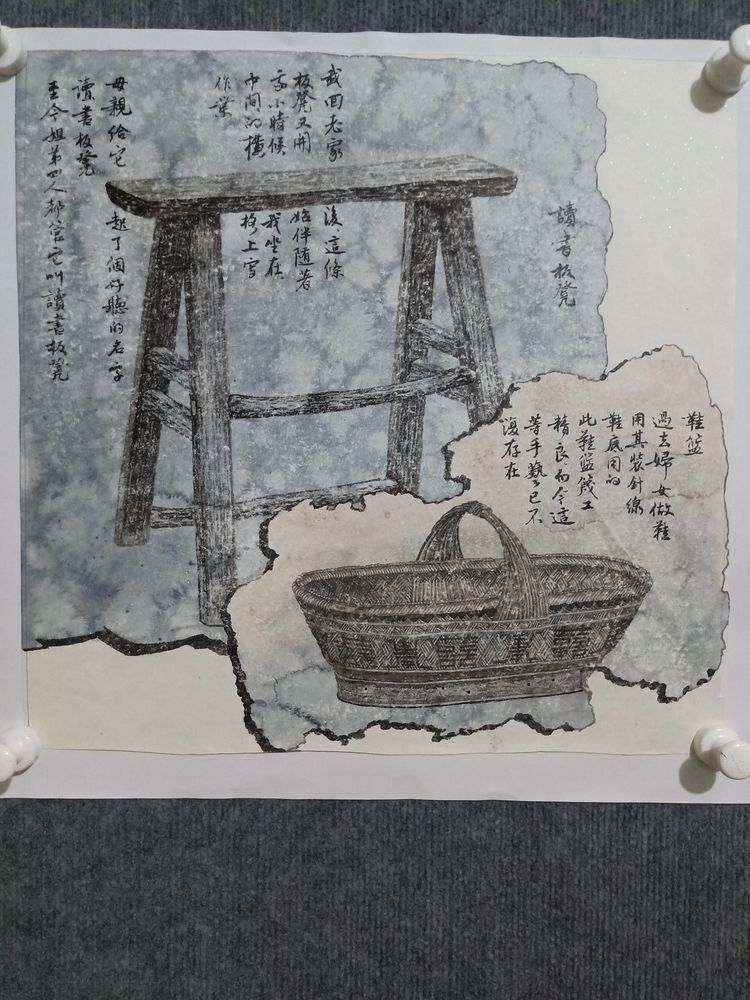 讀書板凳
我回老家後這條
板凳又開始伴隨著
我小時候我坐在
中間的橫上寫
作業
母親給它起了個好聽的名字
讀書板凳
至今姐弟四人都管它叫讀書板凳
鞋籃
過去婦女做鞋
用其裝針線
鞋底用的
此鞋籃篾工
精良而今這
等手藝已不
復存在